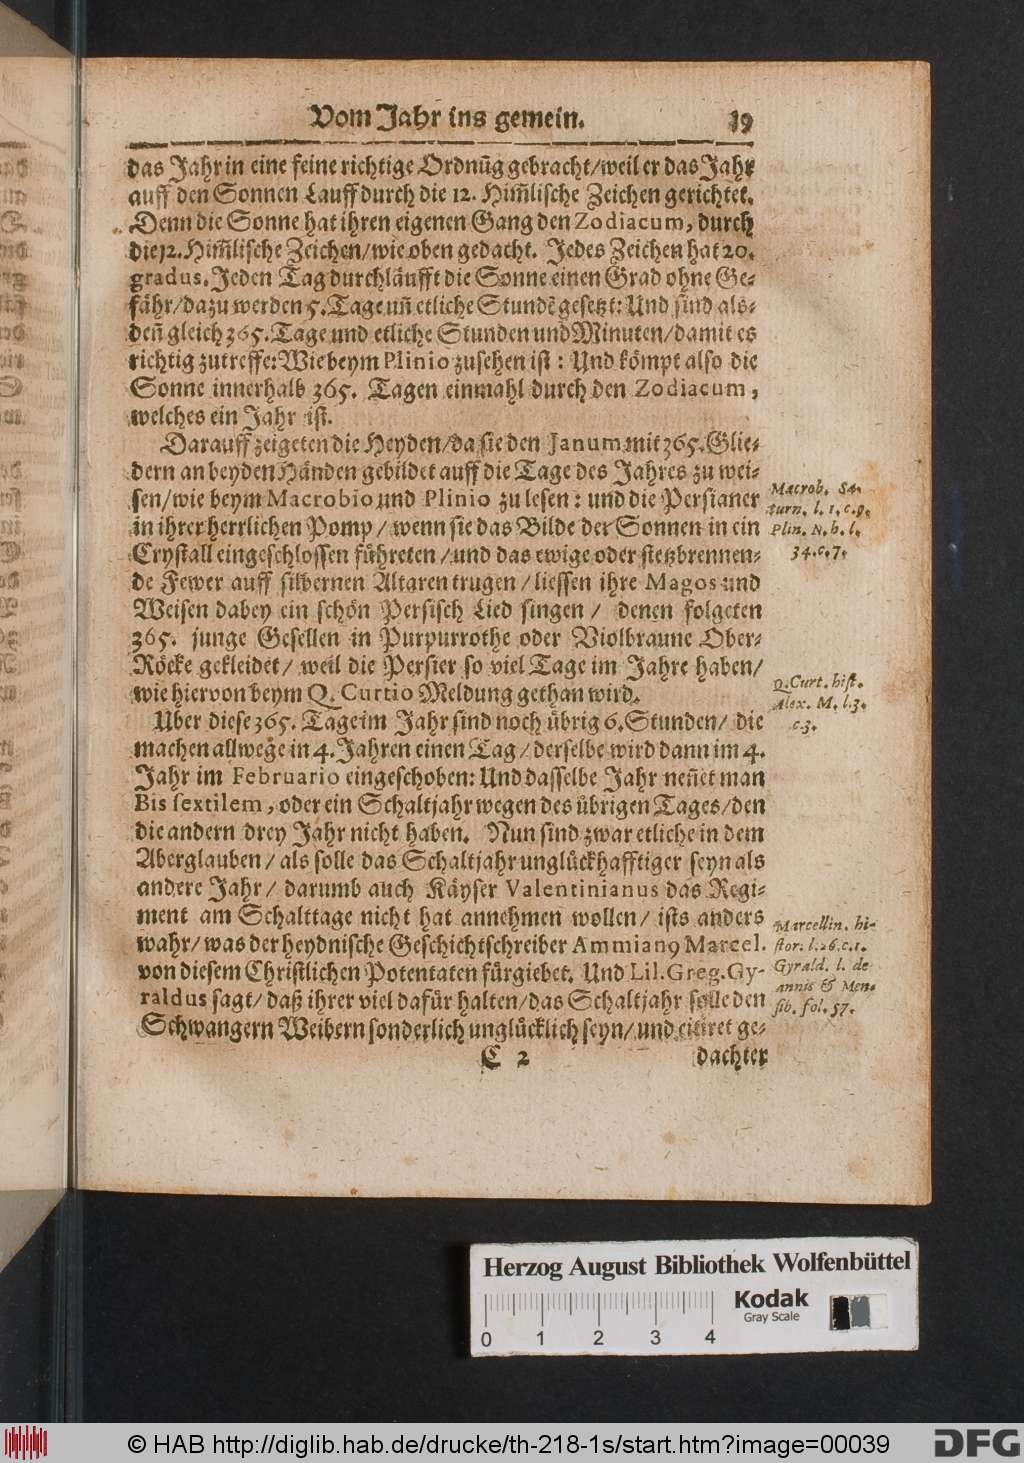 Vom Jahr ins gemein. 19
das Jahr in eine feine richtige Ordnũg gebracht/weil er das Jahr
auff den Sonnen Lauff durch die 12. Him̃lische Zeichen gerichtet.
Denn die Sonne hat ihren eigenen Gang den Zodiacum, durch
die 12. Him̃lische Zeichen/wie oben gedacht. Jedes Zeichen hat 20.
gradus. Jeden Tag durchläufft die Sonne einen Grad ohne Ge-
fähr/dazu werden 5. Tage uñ etliche Stundẽ gesetzt: Und sind als-
deñ gleich 365. Tage und etliche Stunden und Minuten/damit es
richtig zutreffe: Wie beym Plinio zusehen ist: Und kömpt also die
Sonne innerhalb 365. Tagen einmahl durch den Zodiacum,
welches ein Jahr ist.
Darauff zeigeten die Heyden/da sie den Janum mit 365. Glie-
dern an beyden Händen gebildet auff die Tage des Jahres zu wei-
sen/wie beym Macrobio und Plinio zu lesen: und die Persianer
in ihrer herrlichen Pomp/wenn sie das Bilde der Sonnen in ein
Crystall eingeschlossen führeten/und das ewige oder stetzbrennen-
de Fewer auff silbernen Altaren trugen/liessen ihre Magos und
Weisen dabey ein schön Persisch Lied singen/ denen folgeten
365. junge Gesellen in Purpurrothe oder Violbraune Ober-
Röcke gekleidet/ weil die Persier so viel Tage im Jahre haben/
wie hiervon beym Q. Curtio Meldung gethan wird.
Uber diese 365. Tage im Jahr sind noch übrig 6. Stunden/ die
machen allwege in 4. Jahren einen Tag/derselbe wird dann im 4.
Jahr im Februario eingeschoben: Und dasselbe Jahr neñet man
Bis sextilem, oder ein Schaltjahr wegen des übrigen Tages/den
die andern drey Jahr nicht haben. Nun sind zwar etliche in dem
Aberglauben/als solle das Schaltjahr unglückhafftiger seyn als
andere Jahr/ darumb auch Käyser Valentinianus das Regi-
ment am Schalttage nicht hat annehmen wollen/ ists anders
wahr/was der heydnische Geschichtschreiber Ammianꝰ Marcel.
von diesem Christlichen Potentaten fürgiebet. Und Lil. Greg. Gy-
raldus sagt/daß ihrer viel dafür halten/das Schaltjahr solle den
Schwangern Weibern sonderlich unglücklich seyn/und citiret ge-
C 2 dachter
Macrob. Sa-
turn. l. 1. c. 9.
Plin. N. h. l.
34. c. 7.
Q. Curt. hist.
Alex. M. l. 3.
c. 3.
Marcellin. hi-
stor. l. 26. c. 1.
Gyrald. l. de
annis & Men-
sib. fol. 57.
Herzog August Bibliothek Wolfenbüttel
Kodak
Gray Scale
0 1 2 3 4
© HAB http://diglib.hab.de/drucke/th-218-1s/start.htm?image=00039
DFG